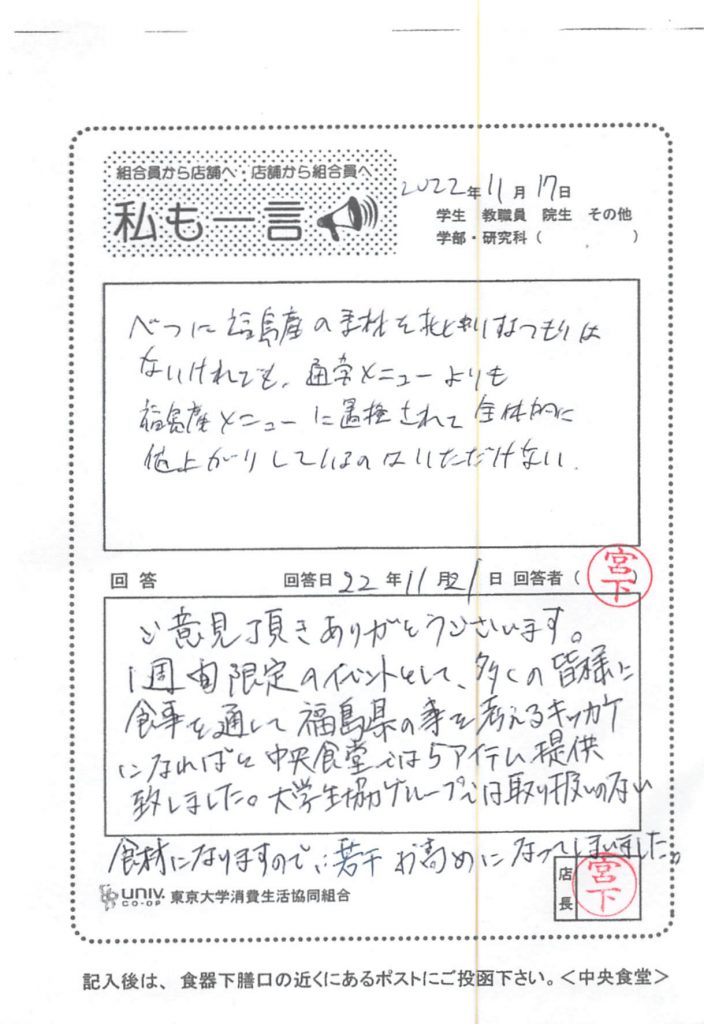 組合員から店舗へ・店舗から組合員へ
私も一言
2022年11月17日
学生 教職員 院生 その他
学部・研究科（ ）
べつに福島産の素材を批判するつもりは
ないけれでも、通常メニューよりも
福島産メニューに置換されて全体的に
値上がりしているのはいただけない.
回答 回答日22年11月21日 回答者（宮下）
ご意見頂きありがとうございます。
1週間限定のイベントとして、多くの皆様に
食事を通して福島県の事を考えるキッカケ
になればと中央食堂では5アイテム提供
致しました。大学生協グループでは取り扱いのない
食材になりますので、若干お高めになってしまいました。
UNIV. CO-OP 東京大学消費生活協同組合
店長 宮下
記入後は、食器下膳口の近くにあるポストにご投函下さい。＜中央食堂＞